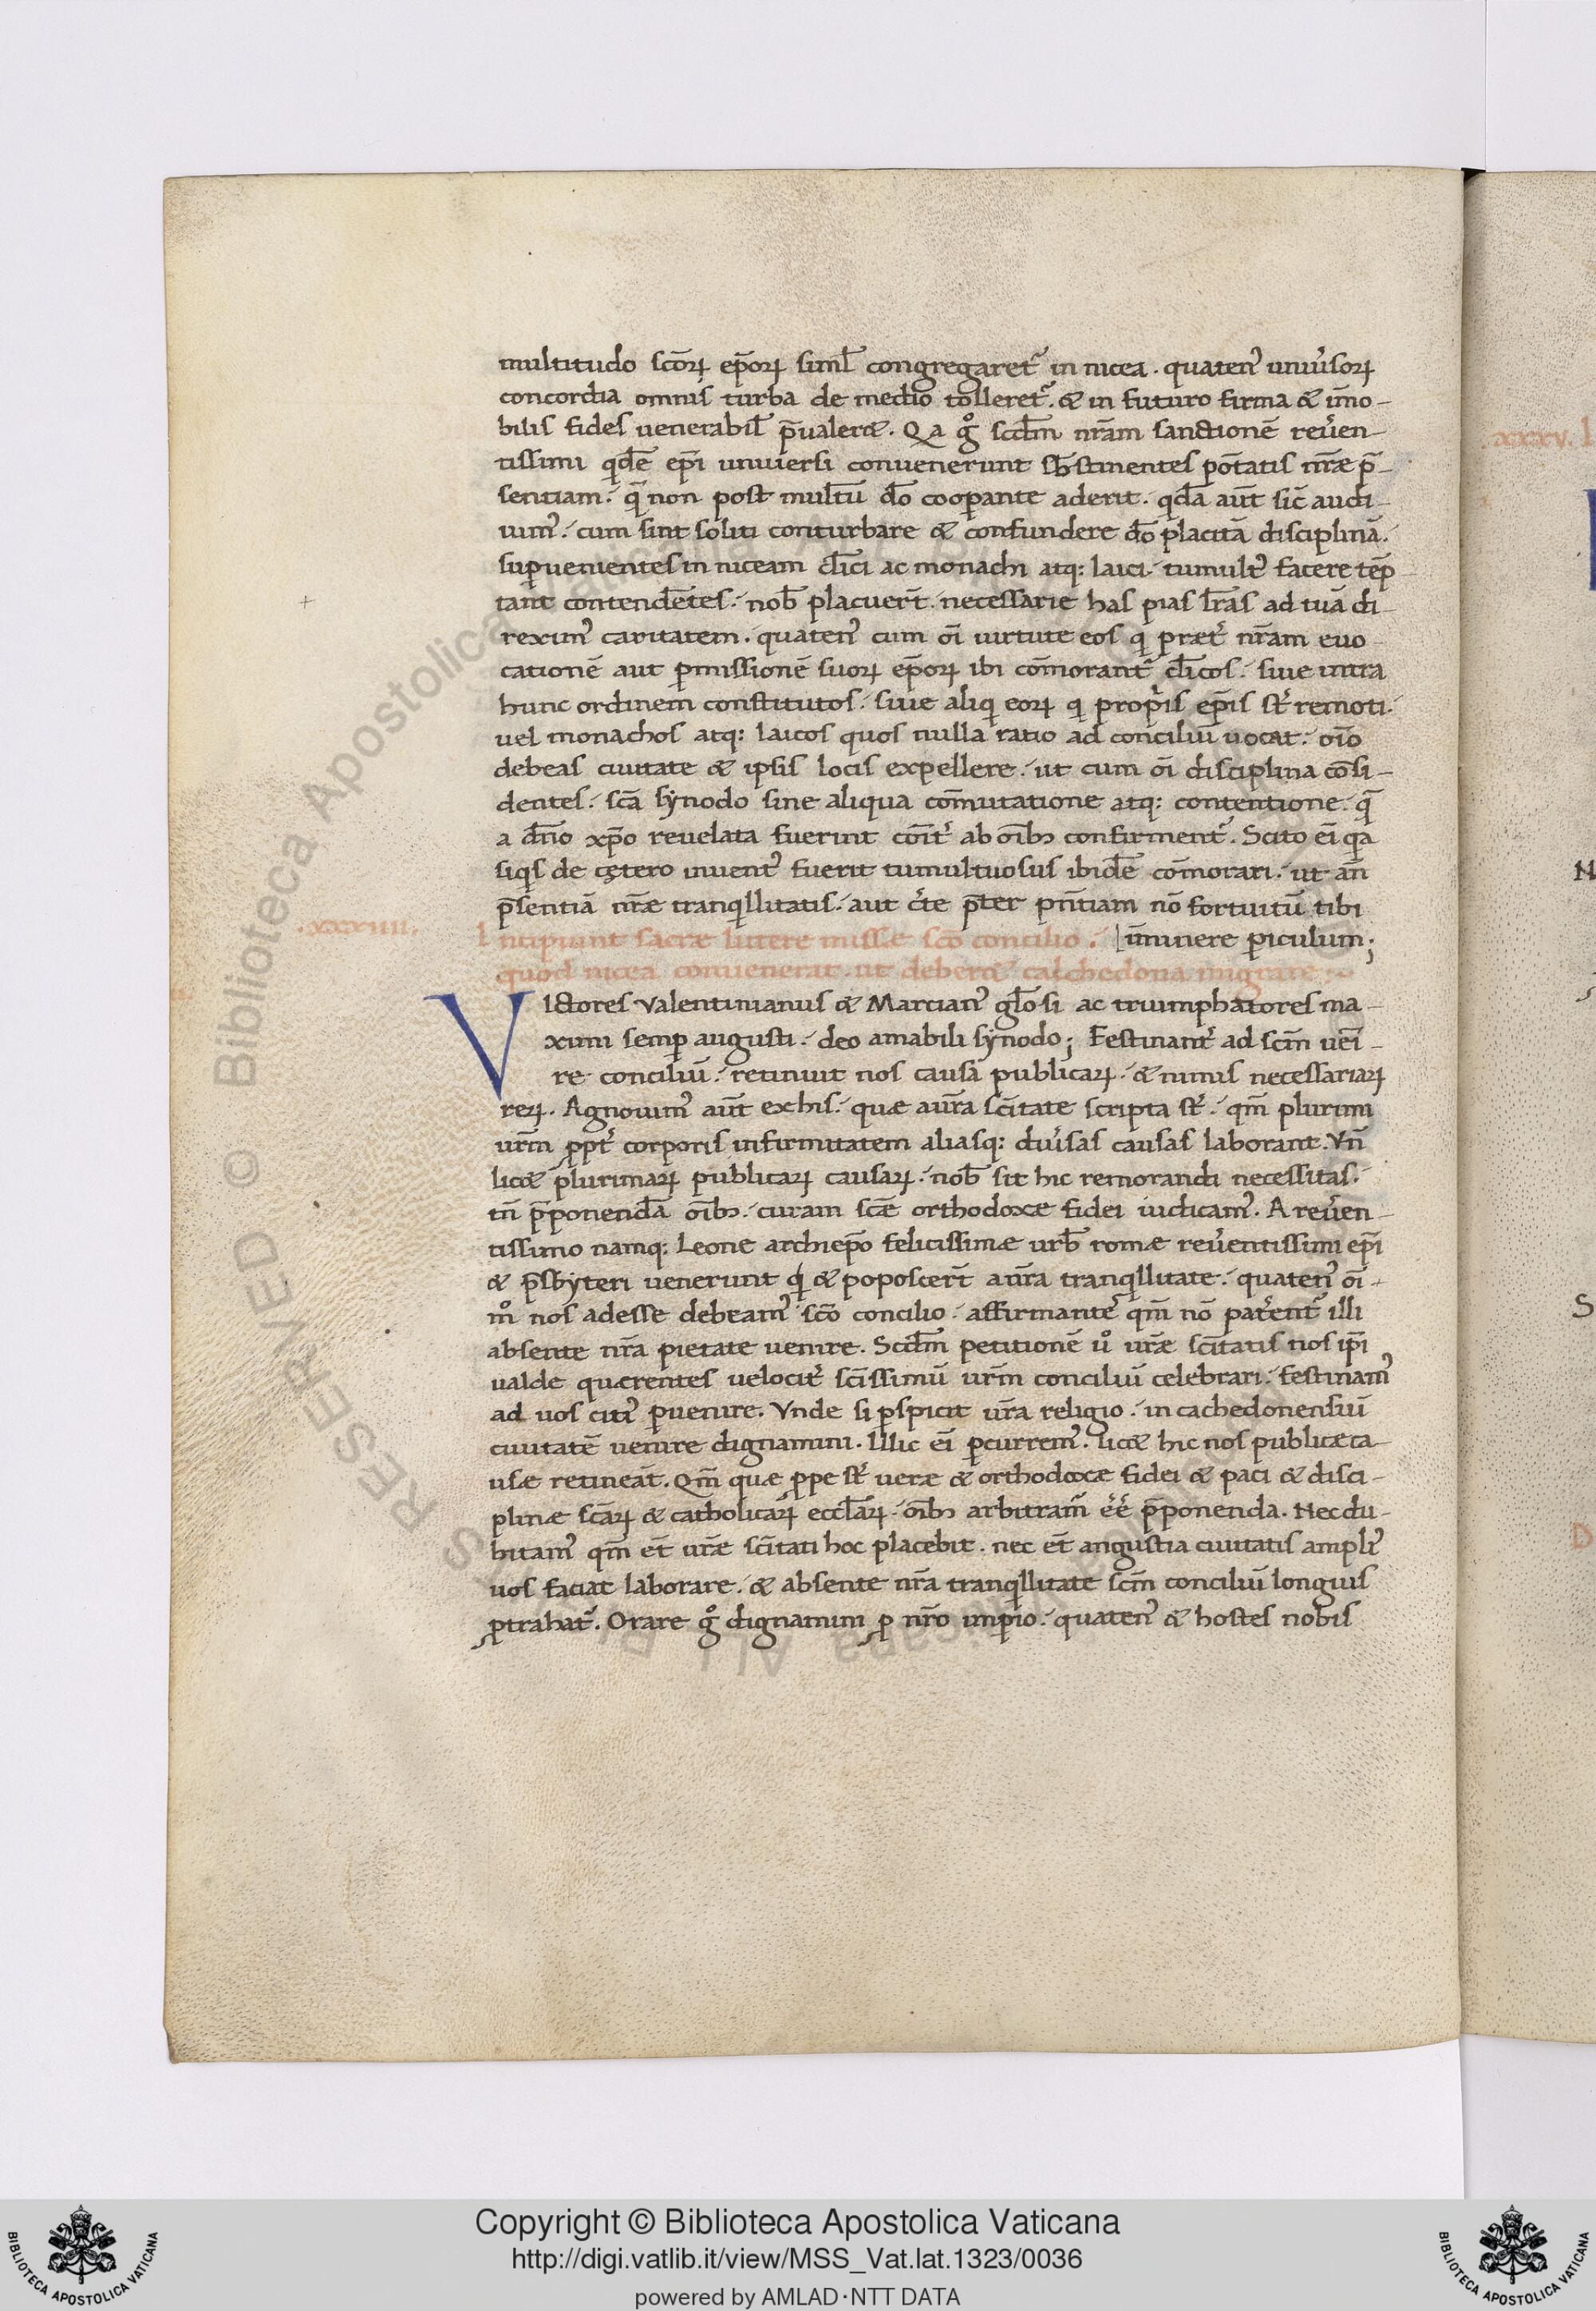 multitudo scōꝝ ep̄oꝝ siml̄ congregaret᷑ in nicea. quaten᷒ uniu᷑soꝝ
concordia omnis turba de medio tolleret᷑. & in futuro firma & im̄o-
bilis fides uenerabil̄ p̄ualer&. Qa gͦ scdm̄ nr̄am sanctionē reu᷑en-
tissimi qdē ep̄i uniuersi conuenerunt sb̄stinentes potᷓatis nr̄ae p̄-
sentiam. q̄ non post multū dō cooꝑante aderit. qdā aut̄ sic̄ audi-
uim᷒. cum sint soliti conturbare & confundere dō placitā disciplinā.
suꝑuenientes in niceam cl̄ici ac monachi atq: laici. tumult᷒ facere tēp
tant contendētes. nob̄ placuert̄. necessarie has pias lr̄as ad tuā di-
rexim᷒ caritatem. quaten᷒ cum oī uirtute eos qi praet᷑ nr̄am euo-
cationē aut ꝑmissionē suoꝝ ep̄oꝝ ibi com̄orant᷑ cl̄icos. siue intra
hunc ordinem constitutos. siue aliqi eoꝝ qi propriis ep̄is st᷑ remoti.
uel monachos atq: laicos quos nulla ratio ad conciliū uocat. oīo
debeas ciuitate & ipsis locis expellere. ut cum oī disciplina cōsi-
dentes. sc̄a synodo sine aliqua com̄utatione atq: contentione. q̄
a dn̄o xp̄o reuelata fuerint coīt᷑ ab oīb; confirment᷑. Scito eī qia
siqis de cętero inuent᷒ fuerit tumultuosus ibidē com̄orari. ut an̄
p̄sentiā nr̄ae tranqillitatis. aut c᷑te p̄ter pn̄tiam nō fortuitū tibi
.xxxiiii. Incipiunt sacrae littere missae scō concilio. im̄inere ꝑiculum;
quod nicea conuenerat. ut deber& calchedona migrare
VIctores Valentinianus & Marcian᷒ gl̄osi ac triumphatores ma-
ximi semꝑ augusti. deo amabili synodo; Festinant᷑ ad scm̄ uenī-
re conciliū. retinuit nos causā publicaꝝ. & nimis necessariaꝝ
reꝝ. Agnouim᷒ aut̄ exhis. quae aur̄a scītate scripta st᷑. qm̄ plurimi
urm̄ ꝓpt᷑ corporis infirmitatem aliasq: diu᷑sas causas laborant. Vn̄
lic& plurimaꝝ publicaꝝ causaꝝ. nob̄ sit hic remorandi necessitas.
tn̄ p̄ponendā oīb;. curam scāe orthodoxae fidei iudicam᷒. A reu᷑en-
tissimo namq: Leone archiep̄o felicissimae urb̄ romae reu᷑entissimi ep̄i
& p̄sbyteri uenerunt qi & poposcert̄ anr̄a tranqillitate. quaten᷒ oī-
mͦ nos adesse debeam᷒ scō concilio. affirmante᷒ qm̄ nō parent᷑ illi
absente nr̄a pietate uenire. Scdm̄ petitionē uͦ ur̄ae scītatis nos ip̄i
ualde quaerentes uelocit᷑ scīssimū urm̄ conciliū celebrari. festinam᷒
ad uos citi᷒ ꝑuenire. Vnde si ꝑspicit ur̄a religio. in cachedonensiū
ciuitatē uenire dignamini. Illic eī ꝑcurrem᷒. lic& hic nos publicae ca-
usae retineāt. Qm̄ quae ꝓpe st᷑ uerae & orthodoxae fidei & paci & disci-
plinae scāꝝ & catholicaꝝ eccl̄aꝝ. oīb; arbitram᷒ eē p̄ponenda. Nec du-
bitam᷒ qm̄ et̄ ur̄ae scītati hoc placebit. nec et̄ angustia ciuitatis ampli᷒
uos faciat laborare. & absente nr̄a tranqillitate scm̄ conciliū longius
ꝓtrahat᷑. Orare gͦ dignamini ꝓ nr̄o imꝑio. quaten᷒ & hostes nobis
.xxxv. I
N
S
D
Copyright © Biblioteca Apostolica Vaticana
http://digi.vatlib.it/view/MSS_Vat.lat.1323/0036
powered by AMLAD·NTT DATA
BIBLIOTECA APOSTOLICA VATICANA
BIBLIOTECA APOSTOLICA VATICANA